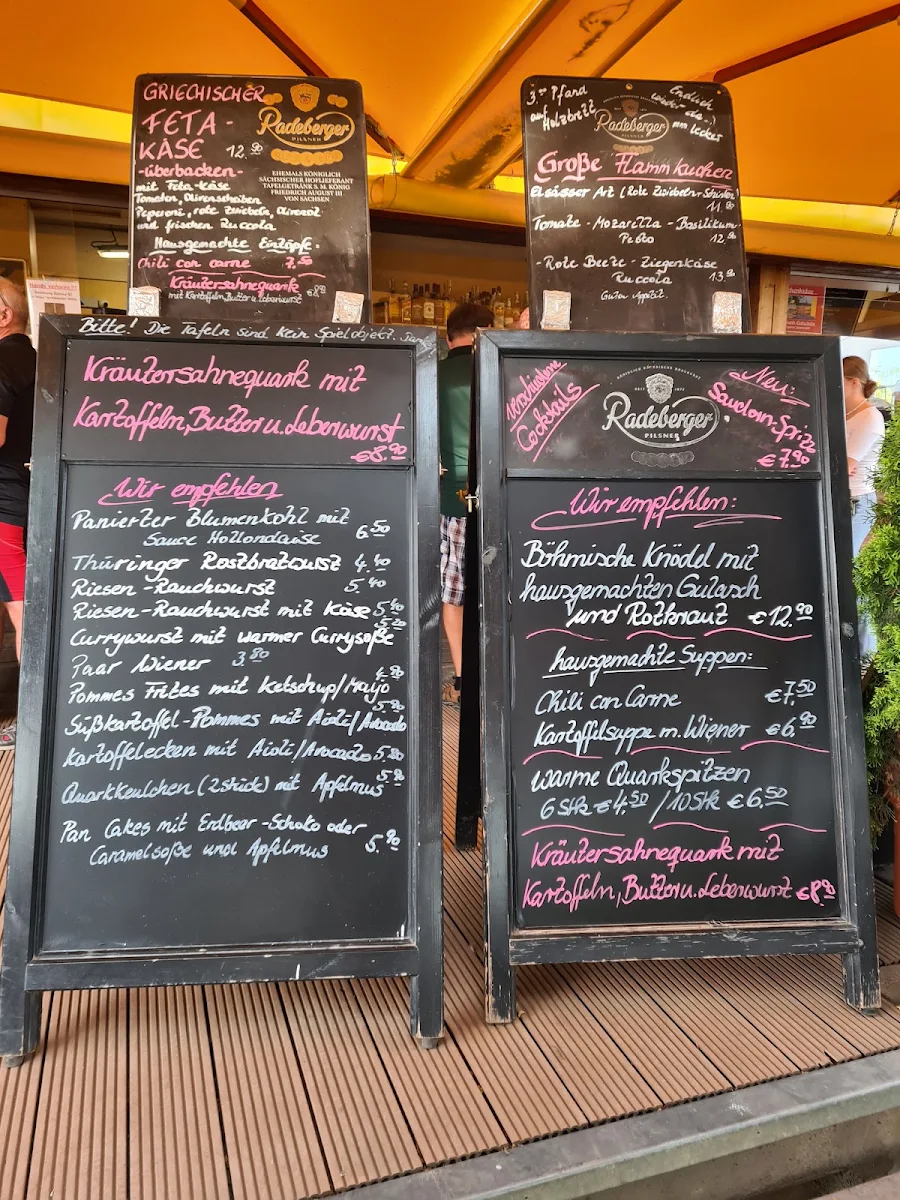 GRIECHISCHER
FETA-
KÄSE 12.90
-überbacken-
mit Feta-Käse
Tomaten, Olivenscheiben
Peperoni, rote Zwiebeln, Olivenöl
und frischen Ruccola
Hausgemachte Eintöpfe.
Chili con carne 7.50
Kräutersahnequark
mit Kartoffeln, Butter u. Leberwurst €8.90
Radeberger
PILSNER
EHEMALS KÖNIGLICH
SÄCHSISCHER HOFLIEFERANT
TAFELGETRÄNK S. M. KÖNIG
FRIEDRICH AUGUST III
VON SACHSEN
3.- Pfand
auf Holzbrett
Endlich
wieder da..!
mm lecker
Radeberger
PILSNER
Große Flammkuchen
Elsässer Art (Rote Zwiebeln+Schinken
11.90
Tomate - Mozarella - Basilikum
Pesto 12.90
-Rote Beete - Ziegenkäse
Ruccola 13.90
Guten Appetit.
Bitte! Die Tafeln sind kein Spielobjekt.
Kräutersahnequark mit
Kartoffeln, Butter u. Leberwurst
€8.90
Wir empfehlen
Panierter Blumenkohl mit
Sauce Hollondaise 6.50
Thüringer Rostbratwurst 4.40
Riesen-Rauchwurst 5.40
Riesen-Rauchwurst mit Käse 5.60
Currywurst mit warmer Currysoße 5.20
Paar Wiener 3.80
Pommes Frites mit Ketschup/Mayo 4.90
Süßkartoffel-Pommes mit Aioli/Avocado 5.90
Kartoffelecken mit Aioli/Avocado 5.80
Quarkkeulchen (2 stück) mit Apfelmus 5.90
Pan Cakes mit Erdbeer-Schoko oder
Caramelsoße und Apfelmus 5.90
verschiedene
Cocktails
Radeberger
PILSNER
Neu
Sanddorn-Spritz
€7.90
Wir empfehlen:
Böhmische Knödel mit
hausgemachten Gulasch
und Rotkraut €12.90
hausgemachte Suppen:
Chili con Carne €7.50
Kartoffelsuppe m. Wiener €6.90
warme Quarkspitzen
6 Stk €4.50 / 10 Stk €6.50
Kräutersahnequark mit
Kartoffeln, Butter u. Leberwurst €8.90